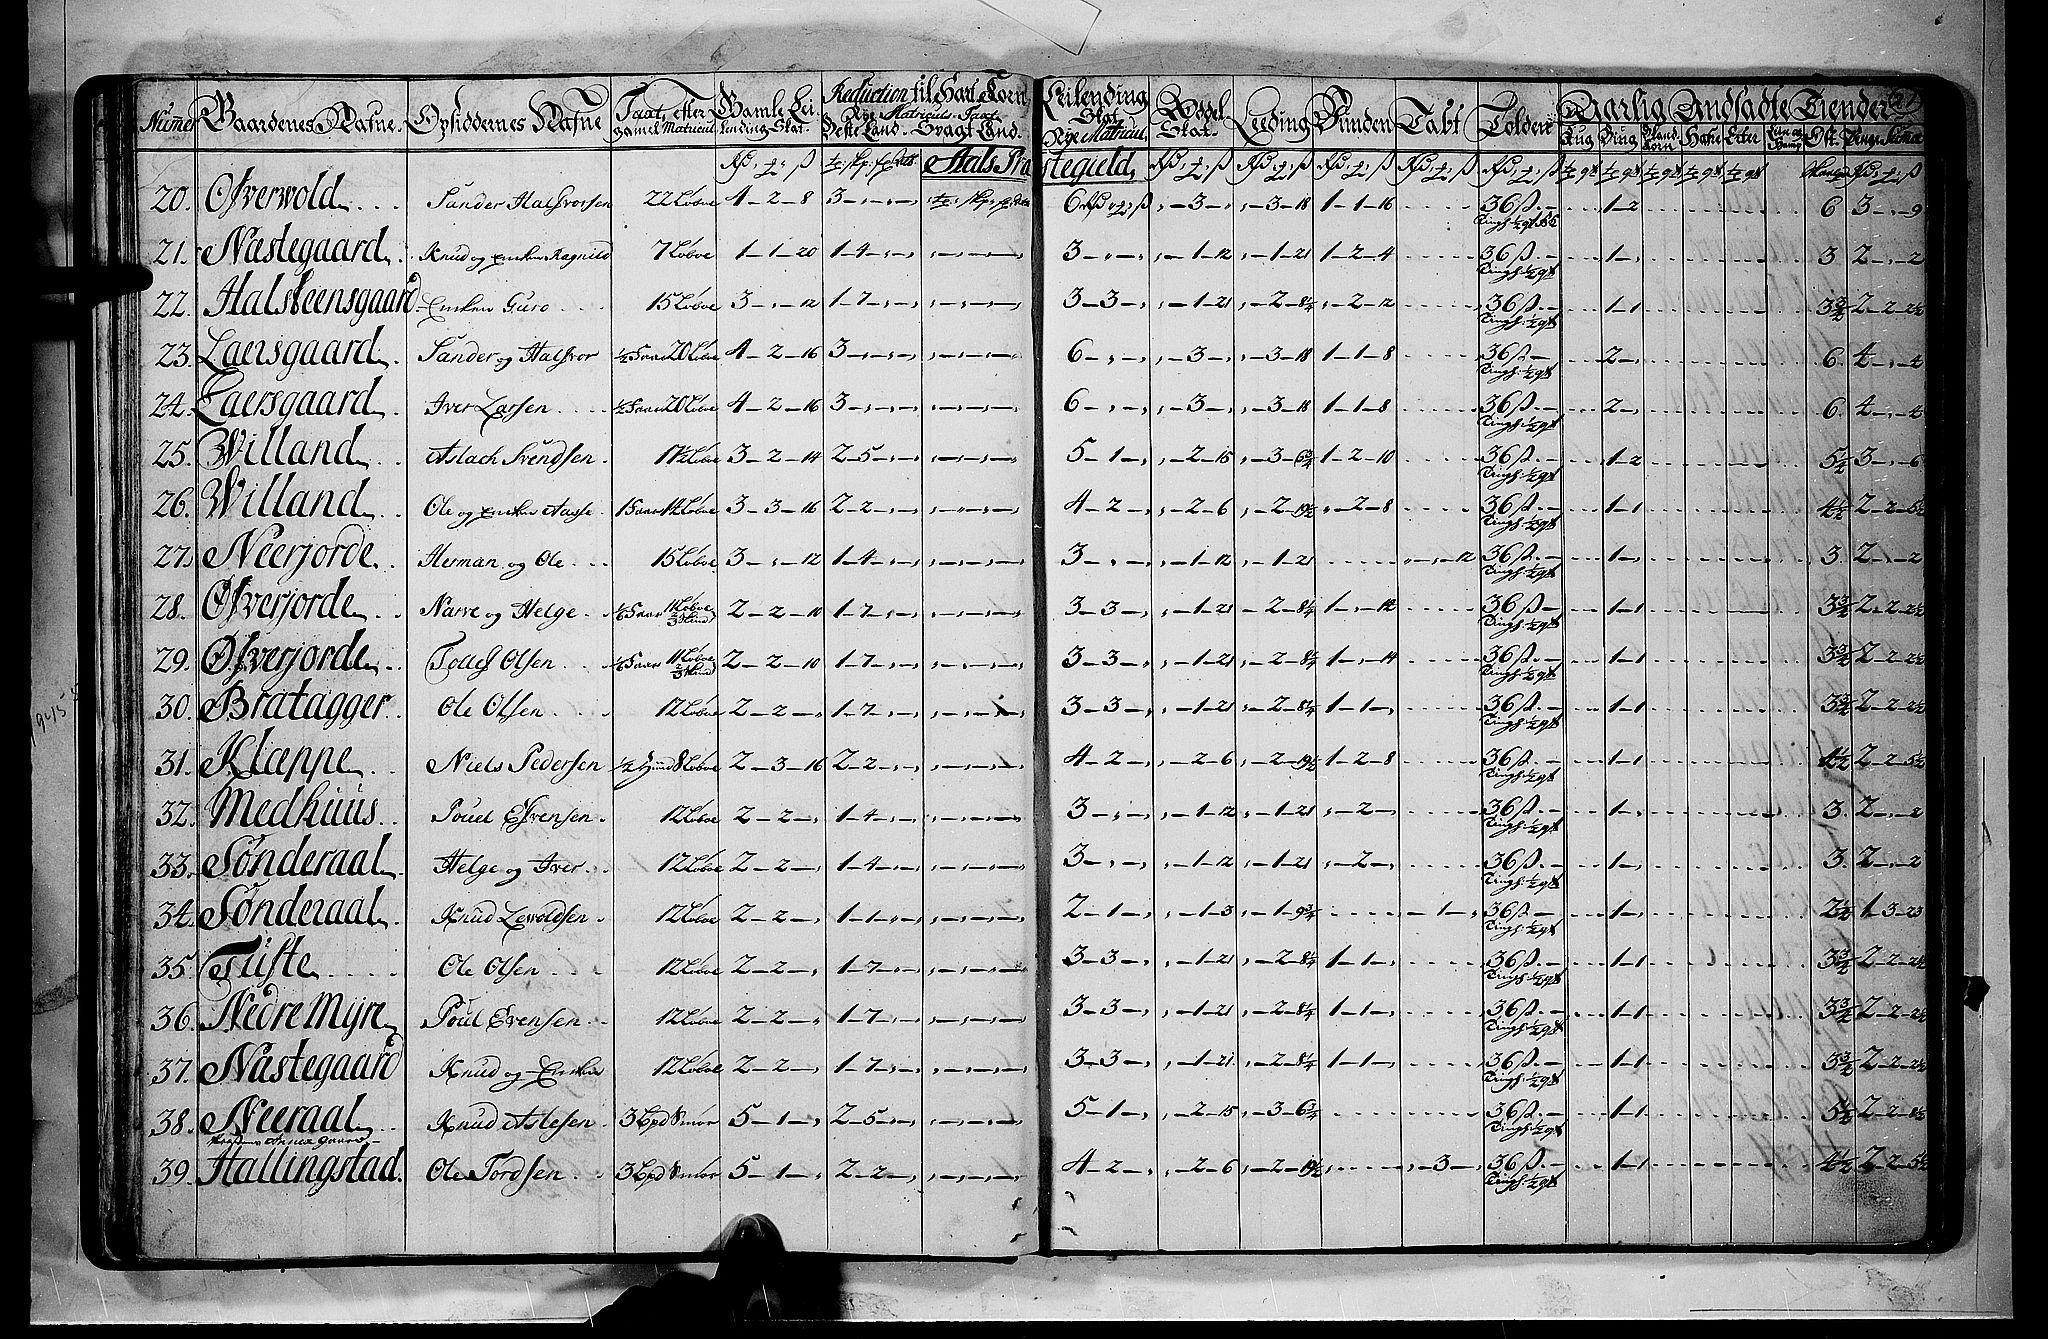 Numer Gaardenes Nafne. Opsiddernes Nafne Taxt efter gamel Matricul Gamle Leilending Skat. Reduction til Hart Korn Nye Matriculs Taxt Beste Land. Svagt Land. Leilending Skat Nye Matricul Oddel Skat. Leeding Vunden Tabt Tolden Aarlig Andsadte Tiender 21
Rug Biug Bland Korn Hafre Erter Ost. Penge Suma
Hals Præstegield,
20. Ofverwold Sander Halfvorsen 22 Løbve 4-2-8 3-,-,-, 6 ,-3-, ,-3-18 1-1-16 36ß.- Tingh: 1-2 6 3-,-9
21. Næstegaard Knud og Enken Ragnild 7 Løbve 1-1-20 1-4-,-, ,-,-,-, 3-,-, ,-1-12 ,-1-21 1-2-4 36ß.- 1-, 3 2-,-2
22. Halsteensgaard Enken Guro 15 Løbve 3-,-12 1-7-,-, ,-,-,-, 3-3-, ,-1-21 ,-2-8¼ ,-2-12 36ß.- 1-1 3¾ 2-2-2½
23. Laersgaard Sander og Halfvor 20 Løbve 4-2-16 3-,-,-, ,-,-,-, 6-,-, ,-3-, ,-3-18 1-1-8 36ß.- 2-, 6. 4-,-4
24. Laersgaard Iver Larsen 20 Løbve 4-2-16 3-,-,-, ,-,-,-, 6-,-, ,-3-, ,-3-18 1-1-8 36ß.- 2-, 6. 4-,-4
25. Willand Aslach Svendsen Løbve 3-2-14 2-5-,-, ,-,-,-, 5-1-, ,-2-15 ,-3-6¾ 1-2-10 36ß.- 1-2 5½ 3-,-6
26. Willand Ole og Enken Aasse Løbve 3-3-16 2-2-,-, ,-,-,-, 4-2-, ,-2-6 ,-2-19½ ,-2-8 36ß.- 1-1 4½ 2-2-5½
27. Neerjorde Herman og Ole 15 Løbve 3-,-12 1-4-,-, ,-,-,-, 3-,-, ,-1-12 ,-1-21 ,-,-12 36ß.- 1-, 3. 2-,-2
28. Ofverjorde Narve og Helge 11 Løbve 2-2-10 1-7-,-, ,-,-,-, 3-3-, ,-1-21 ,-2-8¼ 1-,-14 36ß.- 1-1 3¾ 2-2-2½
29. Ofverjorde Tollef Olsen 11 Løbve 2-2-10 1-7-,-, ,-,-,-, 3-3-, ,-1-21 ,-2-8¼ 1-,-14 36ß.- 1-1 3¾ 2-2-2½
30. Bratagger Ole Olsen 12 Løbve 2-2-, 1-7-,-, ,-,-,-, 3-3-, ,-1-21 ,-2-8¼ 1-1-, 36ß.- 1-1 3¾ 2-2-2½
31. Klæppe Niels Pedersen ½ Hund 8 Løbve 2-3-16 2-2-,-, ,-,-,-, 4-2-, ,-2-6 ,-2-19½ 1-2-8 36ß.- 1-1 4½ 2-2-5½
32. Medhuus Pouel Efvensen 12 Løbve 2-2-, 1-4-,-, ,-,-,-, 3-,-, ,-1-12 ,-1-21 ,-2-, 36ß.- 1-, 3. 2-,-2
33. Sønderaal Helge og Iver 12 Løbve 2-2-, 1-4-,-, ,-,-,-, 3-,-, ,-1-12 ,-1-21 ,-2-, 36ß.- 1-, 3. 2-,-2
34. Sønderaal Knud Levoldsen 12 Løbve 2-2-, 1-1-,-, ,-,-,-, 2-1-, ,-1-3 ,-1-9¾ ,-1-, 36ß.- 1-, 2½ 1-3-23
35. Tufte Ole Olsen 12 Løbve 2-2-, 1-7-,-, ,-,-,-, 3-3-, ,-1-21 ,-2-8¼ 1-1-, 36ß.- 1-1 3¾ 2-2-2½
36. Nedre Mÿre Poul Evensen 12 Løbve 2-2-, 1-7-,-, ,-,-,-, 3-3-, ,-1-21 ,-2-8¼ 1-1-, 36ß.- 1-1 3¾ 2-2-2½
37. Næstegaard Knud og Enken 12 Løbve 2-2-, 1-7-,-, ,-,-,-, 3-3-, ,-1-21 ,-2-8¼ 1-1-, 36ß.- 1-1 3¾ 2-2-2½
38. Neeraal Knud Aslesen 3 Lpd Smør 5-1-, 2-5-,-, ,-,-,-, 5-1-, ,-2-15 ,-3-6¾ 36ß.- 1-1 5½ 2-2-8½
39. Hallingstad. Ole Tordsen 3 Lpd Smør 5-1-, 2-2-,-, ,-,-,-, 4-2-, ,-2-6 ,-2-19½ ,-3-, 36ß.- 1-1 4½ 2-2-5½